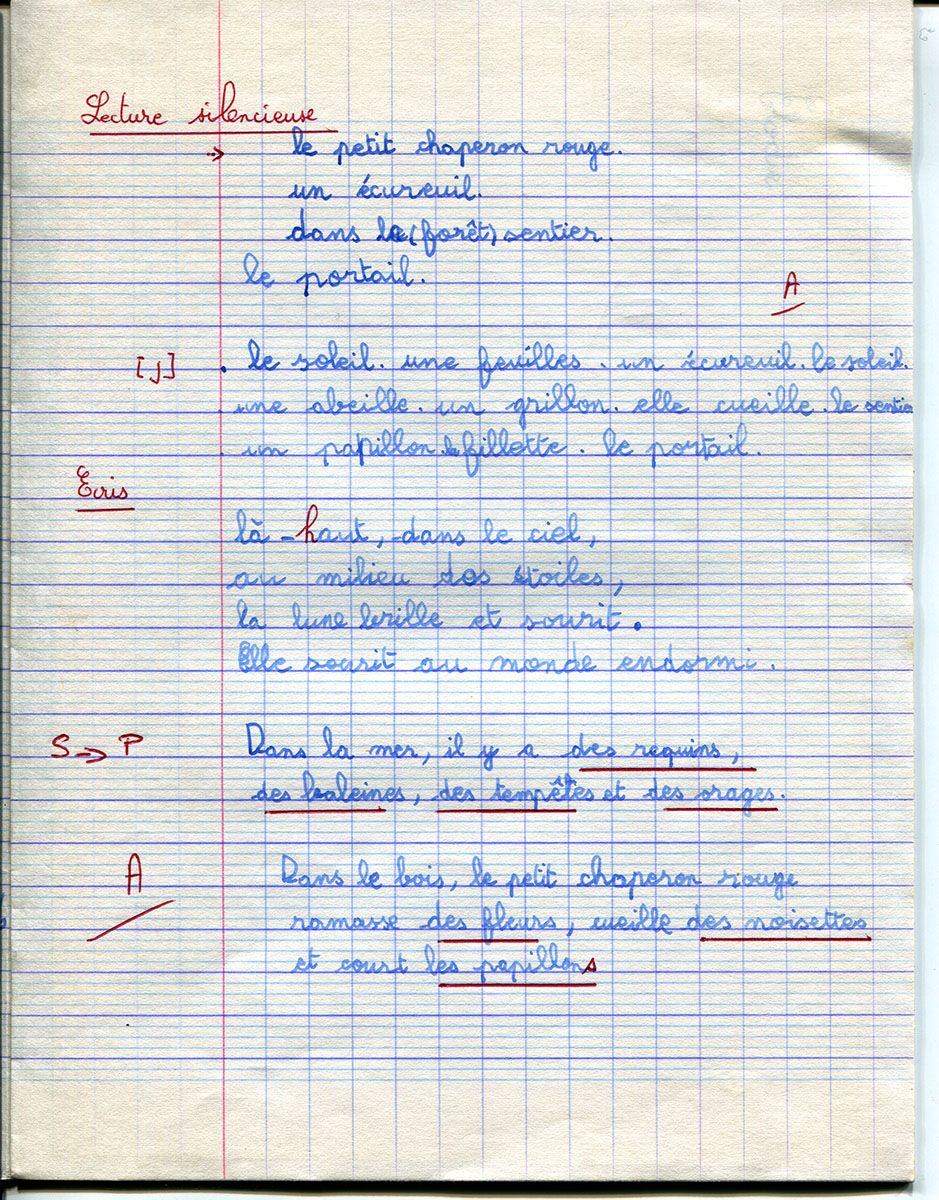 Lecture silencieuse
→ le petit chaperon rouge.
un écureuil.
dans le (forêt) sentier.
le portail.
A
[j] . le soleil. une feuilles. un écureuil. le soleil.
une abeille. un grillon. elle cueille. le sentier
un papillon. la fillette. le portail.
Ecris
là-haut, dans le ciel,
au milieu des étoiles,
la lune brille et sourit.
Elle sourit au monde endormi.
S → P Dans la mer, il y a des requins,
des baleines, des tempêtes et des orages.
A Dans le bois, le petit chaperon rouge
ramasse des fleurs, cueille des noisettes
et court les papillons